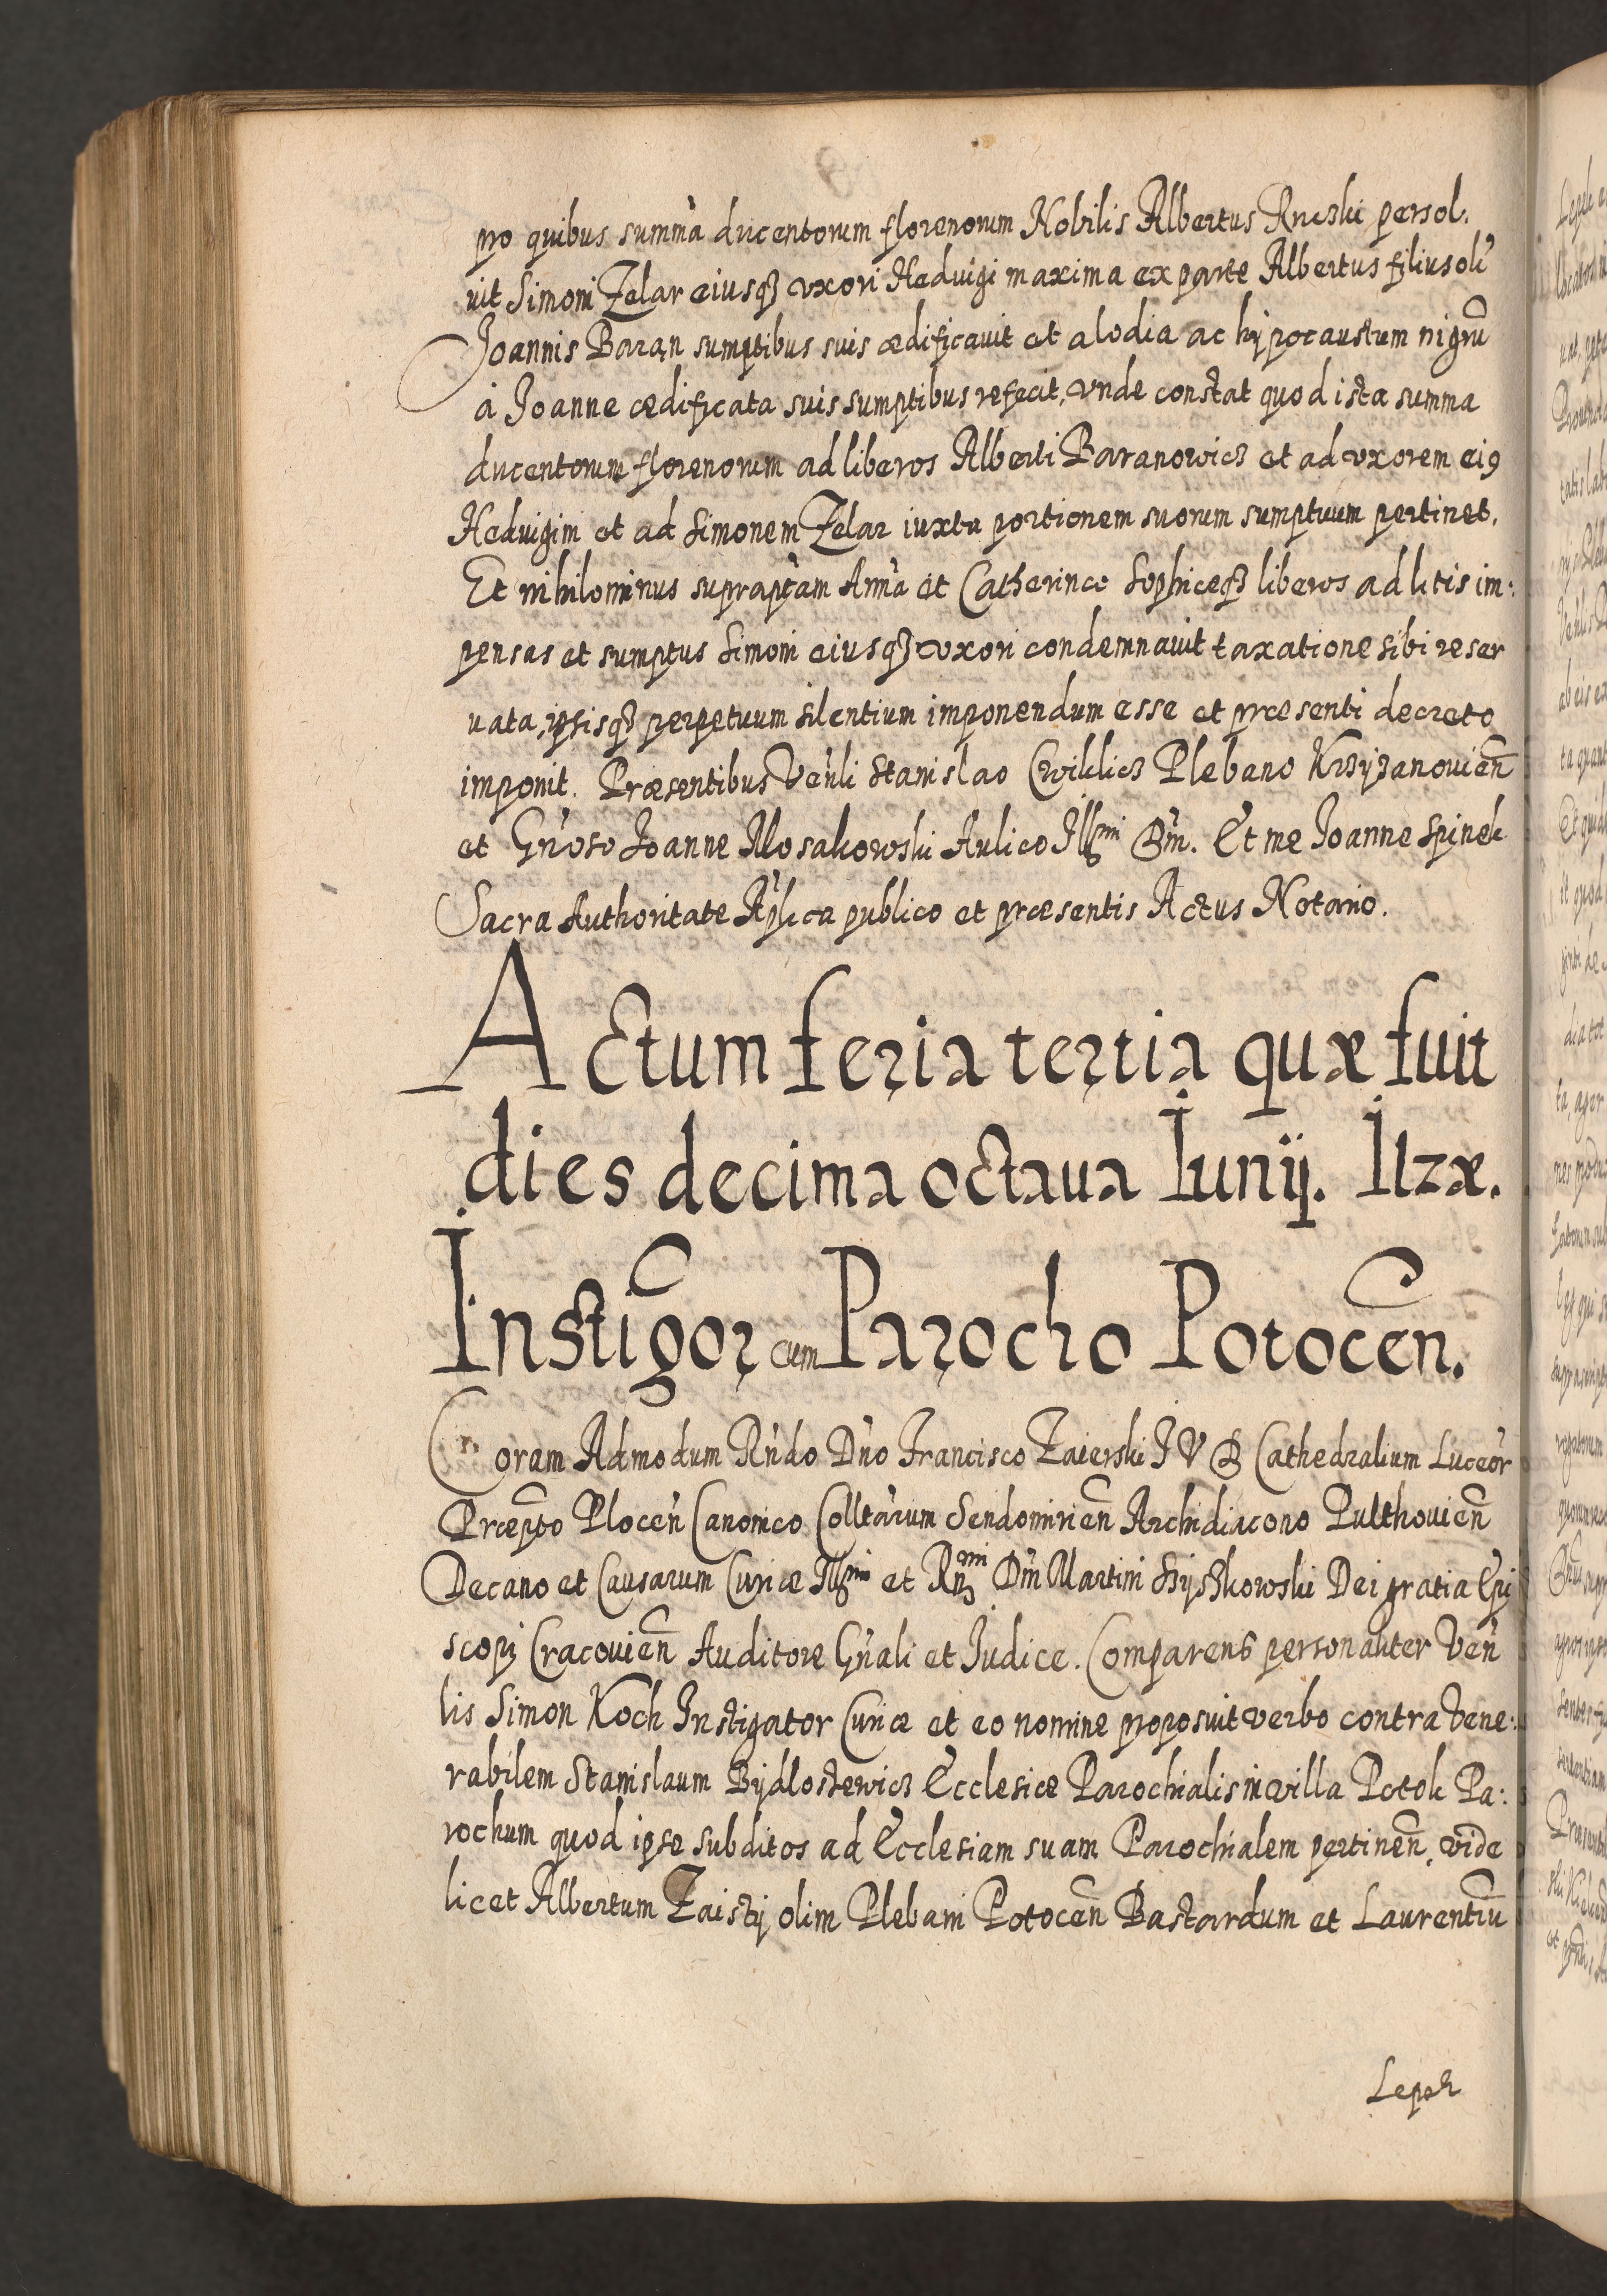 pro quibus summa ducentorum florenorum Nobilis Albertus Rncski persol:
uit Simoni Zelar eiusq3 vxori Heduigi maxima ex parte Albertus filius oli
Joannis Baran sumptibus suis ædificauit et alodia ac hypocaustum nigrū
à Joanne ædificata suis sumptibus refecit, vnde constat quod ista summa
ducentorum florenorum ad liberos Alberti Baranowicz et ad vxorem ei9
Heduigim et ad Simonem Zelar iuxta portionem suorum sumptuum pertinet.
Et nihilominus suprapťam Annā et Catherinæ Sophiæq3 liberos ad litis im:
pensas et sumptus Simoni eiusq3 vxori condemnauit taxatione sibi reser
uata, ipsisq3 perpetuum silentium imponendum esse et præsenti decreto
imponit. Præsentibus Venli Stanislao Cwiklicz Plebano Krzyzanouien̄
et Gnoso Joanne Mosakowski Aulico Illmi Dni. Et me Joanne Spinek
Sacra Authoritate Aplica publico et præsentis Actus Notario.
Actum feria tertia quæ fuit
dies decima octaua Iunij. Ilzæ.
Instigor cum Parocho Potocen̄.
Coram Admodum Rndo Dno Francisco Zaierski J V D Cathedralium Luceor
Præpto Plocen Canonico Colltarum Sendomirien̄ Archidiacono Pulthouien̄
Decano et Causarum Curiæ Illmi et Rndmi Dni Martini Szyszkowski Dei gratia Epi
scopi Cracouien̄ Auditore Gnali et Judice. Comparens personaliter Ven
lis Simon Koch Instigator Curiæ et eo nomine proposuit verbo contra Vene:
rabilem Stanislaum Bydlostewicz Ecclesiæ Parochialis in villa Potok Pa:
rochum quod ipse subditos ad Ecclesiam suam Parochialem pertinen̄, vide
licet Albertum Zaisty olim Plebani Potocen̄ Bastardum et Laurentiū
Lepek